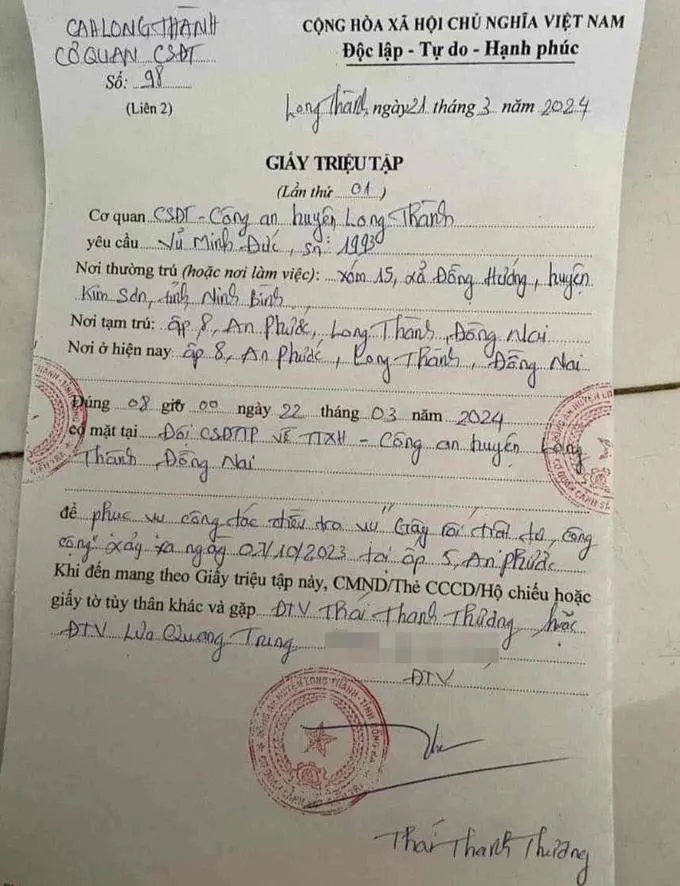 CAH LONG THÀNH
CƠ QUAN CSĐT
Số: 98
(Liên 2)
CỘNG HÒA XÃ HỘI CHỦ NGHĨA VIỆT NAM
Độc lập - Tự do - Hạnh phúc
Long Thành, ngày 21 tháng 3 năm 2024
GIẤY TRIỆU TẬP
(Lần thứ 01)
Cơ quan CSĐT - Công an huyện Long Thành
yêu cầu Vũ Minh Đức, sn: 1993
Nơi thường trú (hoặc nơi làm việc): xóm 15, xã Đồng Hướng, huyện
Kim Sơn, tỉnh Ninh Bình
Nơi tạm trú: ấp 8, An Phước, Long Thành, Đồng Nai
Nơi ở hiện nay: ấp 8, An Phước, Long Thành, Đồng Nai
Đúng 08 giờ 00 ngày 22 tháng 03 năm 2024
có mặt tại Đội CSĐTTP về TTXH - Công an huyện Long
Thành, Đồng Nai
để phục vụ công tác điều tra vụ "Gây rối trật tự công
cộng" xảy ra ngày 07/10/2023 tại ấp 5, An Phước
Khi đến mang theo Giấy triệu tập này, CMND/Thẻ CCCD/Hộ chiếu hoặc
giấy tờ tùy thân khác và gặp ĐTV Thái Thanh Thương hoặc
ĐTV Lưu Quang Trung
ĐTV
Thái Thanh Thương